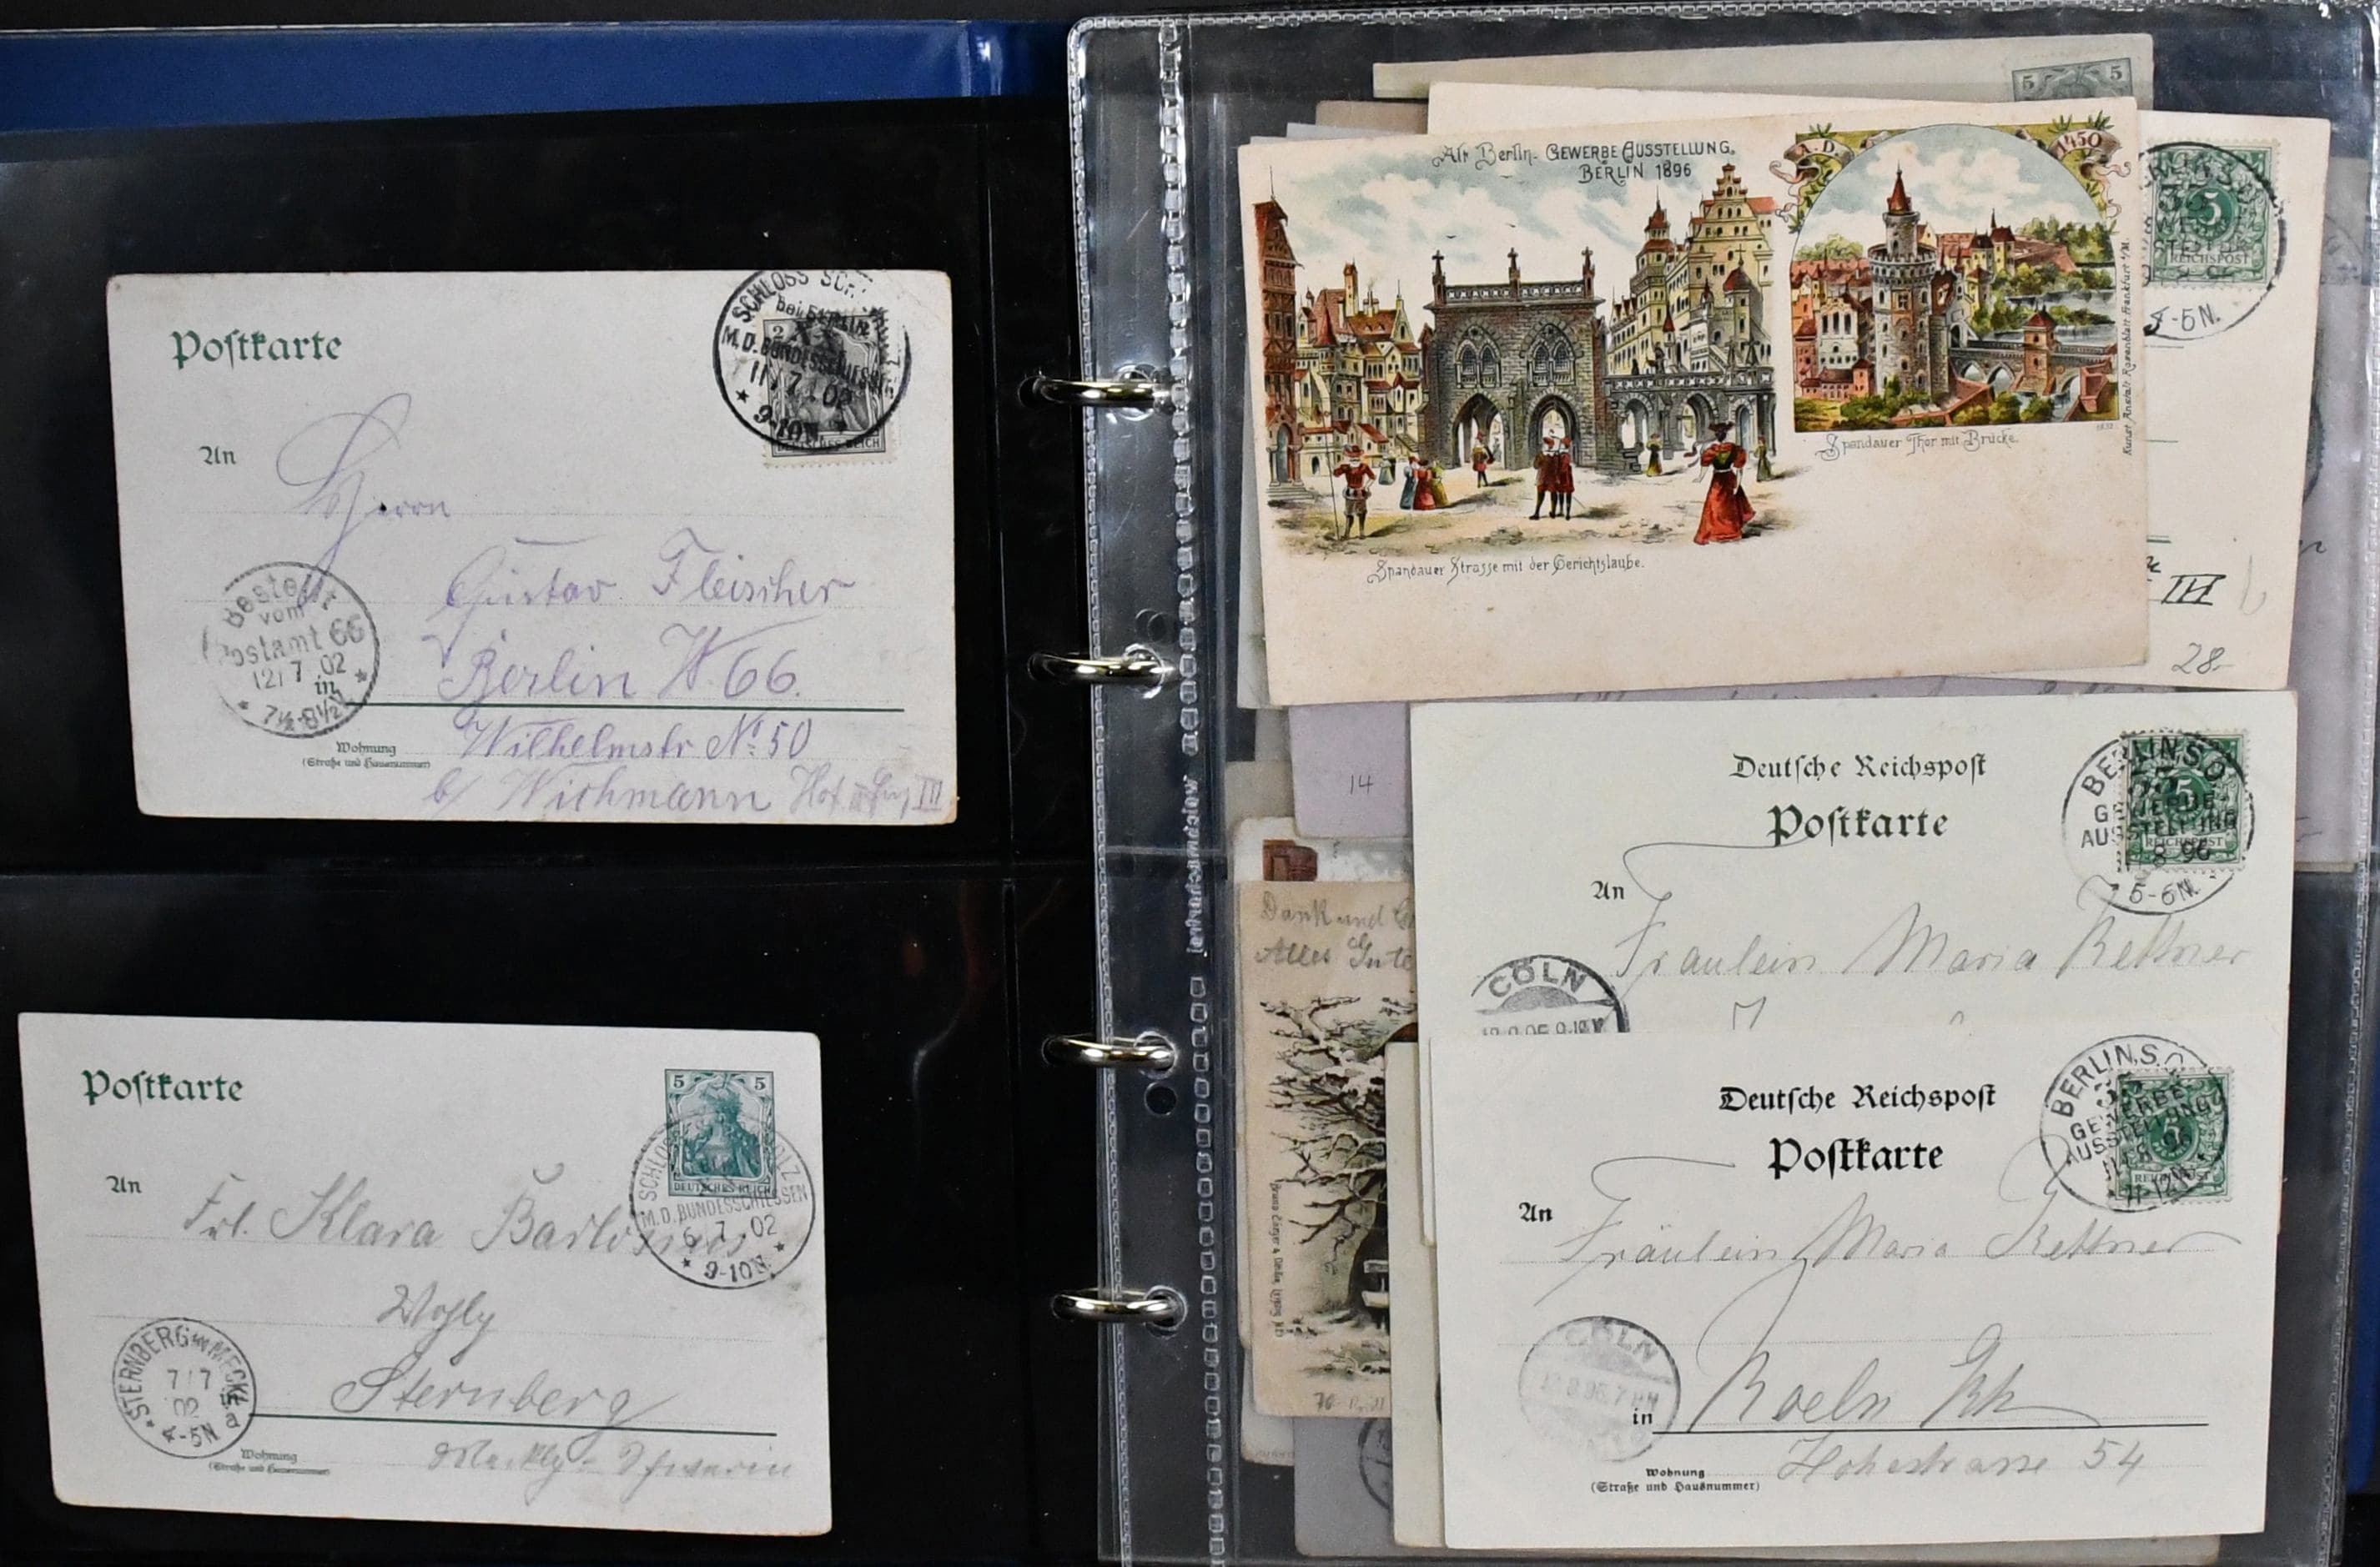 Postkarte
SCHLOSS SCH
bei BERLIN
M. D. BUNDESSCHIESSEN
11/7 02
9-10N
2
DEUTSCHES REICH
An
Herrn
Gustav Fleischer
Berlin W. 66.
Wilhelmstr. No 50
b/ Wichmann Hof III
Bestellt
vom
Postamt 66
12/7 02
7½-8½V
in
Wohnung
(Straße und Hausnummer)
Postkarte
5 5
DEUTSCHES REICH
M.D. BUNDESSCHIESSEN
6 7 02
9-10N.
An
Frl. Klara
Sternberg
STERNBERG in MECKL
7/7
02
4-5N
a
Wohnung
(Straße und Hausnummer)
Meckly - Schwerin
5 5
Alt Berlin - GEWERBE AUSSTELLUNG.
BERLIN 1896
A.D. 1450
Spandauer Thor mit Brücke.
Spandauer Strasse mit der Gerichtslaube.
Kunst Anstalt Rosenblatt Frankfurt a/M.
5
REICHSPOST
4-5N.
III
28.-
14
Deutsche Reichspost
Postkarte
BERLIN, S.O.
35
GEWERBE-
AUSSTELLUNG
8 96
5-6N.
5
REICHSPOST
An
Fräulein Maria Kettner
CÖLN
Dank und
Alles Gute
Deutsche Reichspost
Postkarte
BERLIN, S.O.
35
GEWERBE-
AUSSTELLUNG
11 8 96
11-12V.
5
REICHSPOST
An
Fräulein Maria Kettner
CÖLN
in
Koeln Rh
Hohestrasse 54
Wohnung
(Straße und Hausnummer)